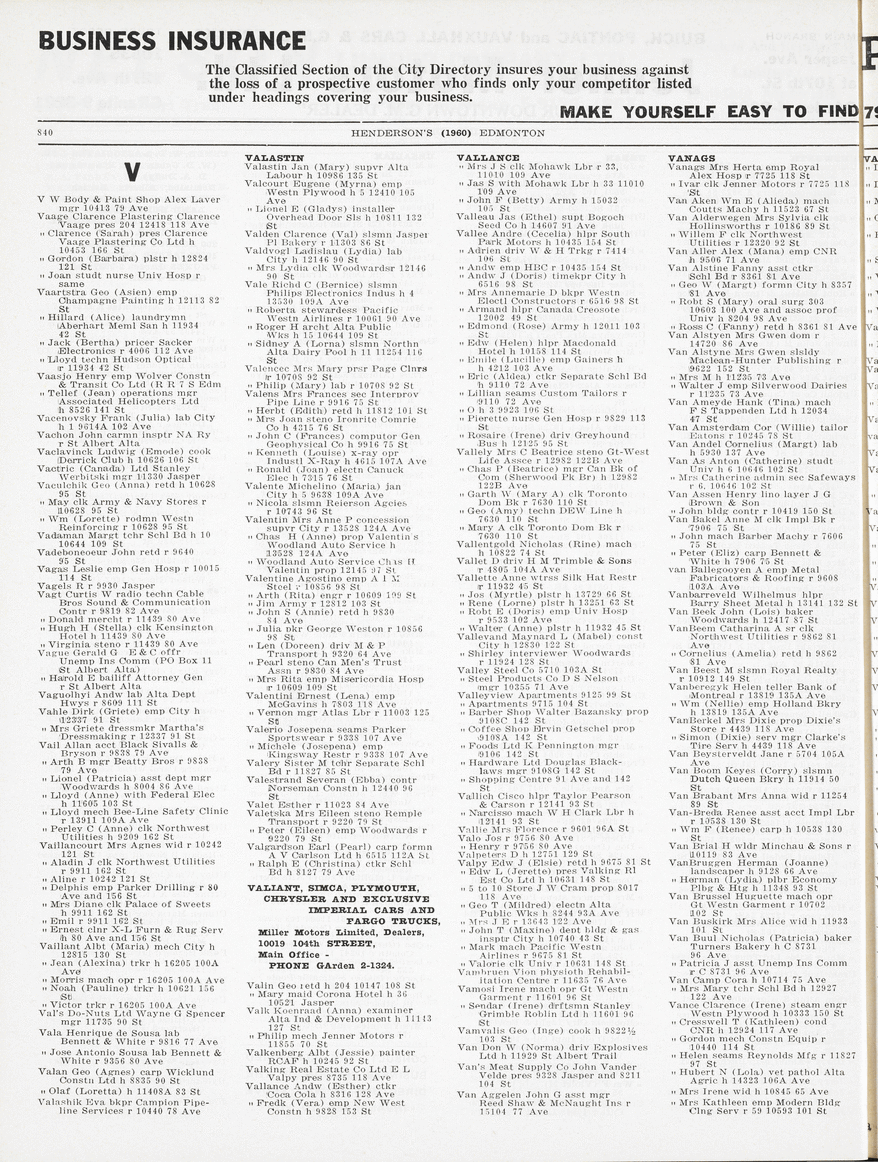 BUSINESS INSURANCE
The Classified Section of the City Directory insures your business against
the loss of a prospective customer who finds only your competitor listed
under headings covering your business.
MAKE YOURSELF EASY TO FIND
840
HENDERSON'S (1960) EDMONTON
V
V W Body & Paint Shop Alex Laver
mgr 10413 79 Ave
Vaage Clarence Plastering Clarence
Vaage pres 204 12418 118 Ave
" Clarence (Sarah) pres Clarence
Vaage Plastering Co Ltd h
10453 166 St
" Gordon (Barbara) plstr h 12824
121 St
" Joan studt nurse Univ Hosp r
same
Vaartstra Geo (Asien) emp
Champagne Painting h 12113 82
St
" Hillard (Alice) laundrymn
Aberhart Meml San h 11934
42 St
" Jack (Bertha) pricer Sacker
Electronics r 4006 112 Ave
" Lloyd techn Hudson Optical
r 11934 42 St
Vaasjo Henry emp Wolver Constn
& Transit Co Ltd (R R 7 S Edm
" Tellef (Jean) operations mgr
Associated Helicopters Ltd
h 8526 141 St
Vacenovsky Frank (Julia) lab City
h 1 9614A 102 Ave
Vachon John carmn insptr NA Ry
r St Albert Alta
Vaclavinck Ludwig (Emode) cook
Derrick Club h 10626 106 St
Vactric (Canada) Ltd Stanley
Werbitski mgr 11330 Jasper
Vaculchik Geo (Anna) retd h 10628
95 St
" May clk Army & Navy Stores r
10628 95 St
" Wm (Lorette) rodmn Westn
Reinforcing r 10628 95 St
Vadaman Margt tchr Schl Bd h 10
10644 109 St
Vadeboncoeur John retd r 9640
95 St
Vagas Leslie emp Gen Hosp r 10015
114 St
Vagels R r 9930 Jasper
Vagt Curtis W radio techn Cable
Bros Sound & Communication
Contr r 9819 82 Ave
" Donald mercht r 11439 80 Ave
" Hugh H (Stella) clk Kensington
Hotel h 11439 80 Ave
" Virginia steno r 11439 80 Ave
Vague Gerald G E & C offr
Unemp Ins Comm (PO Box 11
St Albert Alta)
" Harold E bailiff Attorney Gen
r St Albert Alta
Vaguolhyi Andw lab Alta Dept
Hwys r 8609 111 St
Vahle Dirk (Griete) emp City h
12337 91 St
" Mrs Griete dressmkr Martha's
Dressmaking r 12337 91 St
Vail Allan acct Black Sivalls &
Bryson r 9838 79 Ave
" Arth B mgr Beatty Bros r 9838
79 Ave
" Lionel (Patricia) asst dept mgr
Woodwards h 8004 86 Ave
" Lloyd (Anne) with Federal Elec
h 11605 103 St
" Lloyd mech Bee-Line Safety Clinic
r 13911 109A Ave
" Perley C (Anne) clk Northwest
Utilities h 9209 162 St
Vaillancourt Mrs Agnes wid r 10242
121 St
" Aladin J clk Northwest Utilities
r 9911 162 St
" Aline r 10242 121 St
" Delphis emp Parker Drilling r 80
Ave and 156 St
" Mrs Diane clk Palace of Sweets
h 9911 162 St
" Emil r 9911 162 St
" Ernest clnr X-L Furn & Rug Serv
h 80 Ave and 156 St
Vaillant Albt (Maria) mech City h
12815 130 St
" Jean (Alexina) trk h 16205 100A
Ave
" Morris mach opr r 16205 100A Ave
" Noah (Pauline) trk h 10621 156
St
" Victor trkr r 16205 100A Ave
Val's Do-Nuts Ltd Wayne G Spencer
mgr 11735 90 St
Vala Henrique de Sousa lab
Bennett & White r 9816 77 Ave
" Jose Antonio Sousa lab Bennett &
White r 9356 80 Ave
Valan Geo (Agnes) carp Wicklund
Constn Ltd h 8835 90 St
" Olaf (Loretta) h 11408A 83 St
Valashik Eva bkpr Campion Pipe-
line Services r 10440 78 Ave
VALASTIN
Valastin Jan (Mary) supvr Alta
Labour h 10986 135 St
Valcourt Eugene (Myrna) emp
Westn Plywood h 5 12410 105
Ave
" Lionel E (Gladys) installer
Overhead Door Sls h 10811 132
St
Valden Clarence (Val) slsmn Jasper
Pl Bakery r 11303 86 St
Valdvogl Ladislau (Lydia) lab
City h 12146 90 St
" Mrs Lydia clk Woodwardsr 12146
90 St
Vale Richd C (Bernice) slsmn
Philips Electronics Indus h 4
13530 109A Ave
" Roberta stewardess Pacific
Westn Airlines r 10061 90 Ave
" Roger H archt Alta Public
Wks h 15 10644 109 St
" Sidney A (Lorna) slsmn Northn
Alta Dairy Pool h 11 11254 116
St
Valencec Mrs Mary prsr Page Clnrs
r 10708 92 St
" Philip (Mary) lab r 10708 92 St
Valens Mrs Frances sec Interprov
Pipe Line r 9916 75 St
" Herbt (Edith) retd h 11812 101 St
" Mrs Joan steno Ironrite Comrie
Co h 4315 76 St
" John C (Frances) computor Gen
Geophysical Co h 9916 75 St
" Kenneth (Louise) x-ray opr
Industl X-Ray h 4615 107A Ave
" Ronald (Joan) electn Canuck
Elec h 7315 76 St
Valente Michelino (Maria) jan
City h 5 9638 109A Ave
" Nicola slsmn Reierson Agcies
r 10743 96 St
Valentin Mrs Anne P concession
supvr City r 13528 124A Ave
" Chas H (Anne) prop Valentin's
Woodland Auto Service h
13528 124A Ave
" Woodland Auto Service Chas H
Valentin prop 12145 67 St
Valentine Agostino emp A I M
Steel r 10856 98 St
" Arth (Rita) engr r 10609 109 St
" Jim Army r 12812 103 St
" John S (Annie) retd h 9830
84 Ave
" Julia pkr George Weston r 10856
98 St
" Len (Doreen) driv M & P
Transport h 9320 64 Ave
" Pearl steno Can Men's Trust
Assn r 9830 84 Ave
" Mrs Rita emp Misericordia Hosp
r 10609 109 St
Valentini Ernest (Lena) emp
McGavins h 7803 118 Ave
" Vernon mgr Atlas Lbr r 11003 125
St
Valerio Josepena seams Parker
Sportswear r 9338 107 Ave
" Michele (Josepena) emp
Kingsway Restr r 9338 107 Ave
Valery Sister M tchr Separate Schl
Bd r 11827 85 St
Valestrand Severan (Ebba) contr
Norseman Constn h 12440 96
St
Valet Esther r 11023 84 Ave
Valetska Mrs Eileen steno Remple
Transport r 9220 79 St
" Peter (Eileen) emp Woodwards r
9220 79 St
Valgardson Earl (Pearl) carp formn
A V Carlson Ltd h 6515 112A St
" Ralph E (Christina) ctkr Schl
Bd h 8127 79 Ave
VALIANT, SIMCA, PLYMOUTH,
CHRYSLER AND EXCLUSIVE
IMPERIAL CARS AND
FARGO TRUCKS,
Miller Motors Limited, Dealers,
10019 104th STREET,
Main Office -
PHONE GArden 2-1324.
Valin Geo retd h 204 10147 108 St
" Mary maid Corona Hotel h 36
10521 Jasper
Valk Koenraad (Anna) examiner
Alta Ind & Development h 11143
127 St
" Philip mech Jenner Motors r
11855 70 St
Valkenberg Albt (Jessie) painter
RCAF h 10245 92 St
Valking Real Estate Co Ltd E L
Valpy pres 8735 118 Ave
Vallance Andw (Esther) ctkr
Coca Cola h 8316 128 Ave
" Fredk (Vera) emp New West
Constn h 9828 153 St
VALLANCE
" Mrs J S clk Mohawk Lbr r 33,
11010 109 Ave
" Jas S with Mohawk Lbr h 33 11010
109 Ave
" John F (Betty) Army h 15032
105 St
Valleau Jas (Ethel) supt Bogoch
Seed Co h 14607 91 Ave
Vallee Andre (Cecelia) hlpr South
Park Motors h 10435 154 St
" Adrien driv W & H Trkg r 7414
106 St
" Andw emp HBC r 10435 154 St
" Andw J (Doris) timekpr City h
6516 98 St
" Mrs Annemarie D bkpr Westn
Electl Constructors r 6516 98 St
" Armand hlpr Canada Creosote
12002 49 St
" Edmond (Rose) Army h 12011 103
St
" Edw (Helen) hlpr Macdonald
Hotel h 10158 114 St
" Emile (Lucille) emp Gainers h
h 4212 103 Ave
" Eric (Aldea) ctkr Separate Schl Bd
h 9110 72 Ave
" Lillian seams Custom Tailors r
9110 72 Ave
" O h 3 9923 106 St
" Pierette nurse Gen Hosp r 9829 113
St
" Rosaire (Irene) driv Greyhound
Bus h 12125 95 St
Vallely Mrs C Beatrice steno Gt-West
Life Assce r 12982 122B Ave
" Chas P (Beatrice) mgr Can Bk of
Com (Sherwood Pk Br) h 12982
122B Ave
" Garth W (Mary A) clk Toronto
Dom Bk r 7630 110 St
" Geo (Amy) techn DEW Line h
7630 110 St
" Mary A clk Toronto Dom Bk r
7630 110 St
Vallentgold Nicholas (Rine) mach
h 10822 74 St
Vallet D driv H M Trimble & Sons
r 4805 104A Ave
Vallette Anne wtrss Silk Hat Restr
r 11932 45 St
" Jos (Myrtle) plstr h 13729 66 St
" Rene (Lorne) plstr h 13251 63 St
" Robt E (Doris) emp Univ Hosp
r 9533 102 Ave
" Walter (Anne) plstr h 11932 45 St
Vallevand Maynard L (Mabel) const
City h 12830 122 St
" Shirley interviewer Woodwards
r 11924 128 St
Valley Steel Co 5710 103A St
" Steel Products Co D S Nelson
mgr 10355 71 Ave
Valleyview Apartments 9125 99 St
" Apartments 9715 104 St
" Barber Shop Walter Bazansky prop
9108C 142 St
" Coffee Shop Ervin Getschel prop
9108A 142 St
" Foods Ltd K Pennington mgr
9106 142 St
" Hardware Ltd Douglas Black-
laws mgr 9108G 142 St
" Shopping Centre 91 Ave and 142
St
Vallich Cisco hlpr Taylor Pearson
& Carson r 12141 93 St
" Narcisso mach W H Clark Lbr h
12141 93 St
Vallie Mrs Florence r 9601 96A St
Valo Jos r 9756 80 Ave
" Henry r 9756 80 Ave
Valpeters D h 12751 129 St
Valpy Edw J (Elsie) retd h 9675 81 St
" Edw L (Jerette) pres Valking Rl
Est Co Ltd h 10631 148 St
" 5 to 10 Store J W Cram prop 8017
118 Ave
" Geo T (Mildred) electn Alta
Public Wks h 8244 93A Ave
" Mrs J E r 13643 122 Ave
" John T (Maxine) dent bldg & gas
insptr City h 10740 43 St
" Mark mach Pacific Westn
Airlines r 9675 81 St
" Valorie clk Univ r 10631 148 St
Vambruen Vion physioth Rehabil-
itation Centre r 11635 76 Ave
Vamosi Irene mach opr Gt Westn
Garment r 11601 96 St
" Sendar (Irene) drftsmn Stanley
Grimble Roblin Ltd h 11601 96
St
Vamvalis Geo (Inge) cook h 9822½
103 St
Van Don W (Norma) driv Explosives
Ltd h 11929 St Albert Trail
Van's Meat Supply Co John Vander
Velde pres 9328 Jasper and 8211
104 St
Van Aggelen John G asst mgr
Reed Shaw & McNaught Ins r
15104 77 Ave
VANAGS
Vanags Mrs Herta emp Royal
Alex Hosp r 7725 118 St
" Ivar clk Jenner Motors r 7725 118
St
Van Aken Wm E (Alieda) mach
Coutts Machy h 11523 67 St
Van Alderwegen Mrs Sylvia clk
Hollinsworths r 10186 89 St
" Willem F clk Northwest
Utilities r 12320 92 St
Van Aller Alex (Mana) emp CNR
h 9506 71 Ave
Van Alstine Fanny asst ctkr
Schl Bd r 8361 81 Ave
" Geo W (Margt) formn City h 8357
81 Ave
" Robt S (Mary) oral surg 303
10603 100 Ave and assoc prof
Univ h 8204 98 Ave
" Ross C (Fanny) retd h 8361 81 Ave
Van Alstyen Mrs Gwen dom r
14720 86 Ave
Van Alstyne Mrs Gwen slsldy
Maclean-Hunter Publishing r
9622 152 St
" Mrs M h 11235 73 Ave
" Walter J emp Silverwood Dairies
r 11235 73 Ave
Van Ameyde Hank (Tina) mach
F S Tappenden Ltd h 12034
47 St
Van Amsterdam Cor (Willie) tailor
Eatons r 10245 78 St
Van Andel Cornelius (Margt) lab
h 5930 137 Ave
Van As Anton (Catherine) studt
Univ h 6 10646 102 St
" Mrs Catherine admin sec Safeways
r 6, 10646 102 St
Van Assen Henry lino layer J G
Brown & Son
" John bldg contr r 10419 150 St
Van Bakel Anne M clk Impl Bk r
7906 75 St
" John mach Barber Machy r 7606
75 St
" Peter (Eliz) carp Bennett &
White h 7906 75 St
van Ballegooyen A emp Metal
Fabricators & Roofing r 9608
103A Ave
Vanbarreveld Wilhelmus hlpr
Barry Sheet Metal h 13141 132 St
Van Beek John (Lois) baker
Woodwards h 12417 87 St
VanBeem Catharina A sr clk
Northwest Utilities r 9862 81
Ave
" Cornelius (Amelia) retd h 9862
81 Ave
Van Beest M slsmn Royal Realty
r 10912 149 St
Vanberegyk Helen teller Bank of
Montreal r 13819 135A Ave
" Wm (Nellie) emp Holland Bkry
h 13819 135A Ave
VanBerkel Mrs Dixie prop Dixie's
Store r 4439 118 Ave
" Simon (Dixie) serv mgr Clarke's
Tire Serv h 4439 118 Ave
Van Beysterveldt Jane r 5704 105A
Ave
Van Boom Keyes (Corry) slsmn
Dutch Queen Bkry h 11914 50
St
Van Brabant Mrs Anna wid r 11254
89 St
Van-Breda Renee asst acct Impl Lbr
r 10538 130 St
" Wm F (Renee) carp h 10538 130
St
Van Brial H wldr Minchau & Sons r
10119 83 Ave
VanBruggen Herman (Joanne)
landscaper h 9128 66 Ave
" Herman (Lydia) plbr Economy
Plbg & Htg h 11348 93 St
Van Brussel Huguette mach opr
Gt Westn Garment r 10702
102 St
Van Buskirk Mrs Alice wid h 11933
101 St
Van Buul Nicholas (Patricia) baker
Turners Bakery h C 8731
96 Ave
" Patricia J asst Unemp Ins Comm
r C 8731 96 Ave
Van Camp Cora h 10714 75 Ave
" Mrs Mary tchr Schl Bd h 12927
122 Ave
Vance Clarence (Irene) steam engr
Westn Plywood h 10333 150 St
" Cresswell T (Kathleen) cond
CNR h 12924 117 Ave
" Gordon mech Constn Equip r
10440 114 St
" Helen seams Reynolds Mfg r 11827
97 St
" Hubert N (Lola) vet pathol Alta
Agric h 14323 106A Ave
" Mrs Irene wid h 10845 65 Ave
" Mrs Kathleen emp Modern Bldg
Clng Serv r 59 10593 101 St